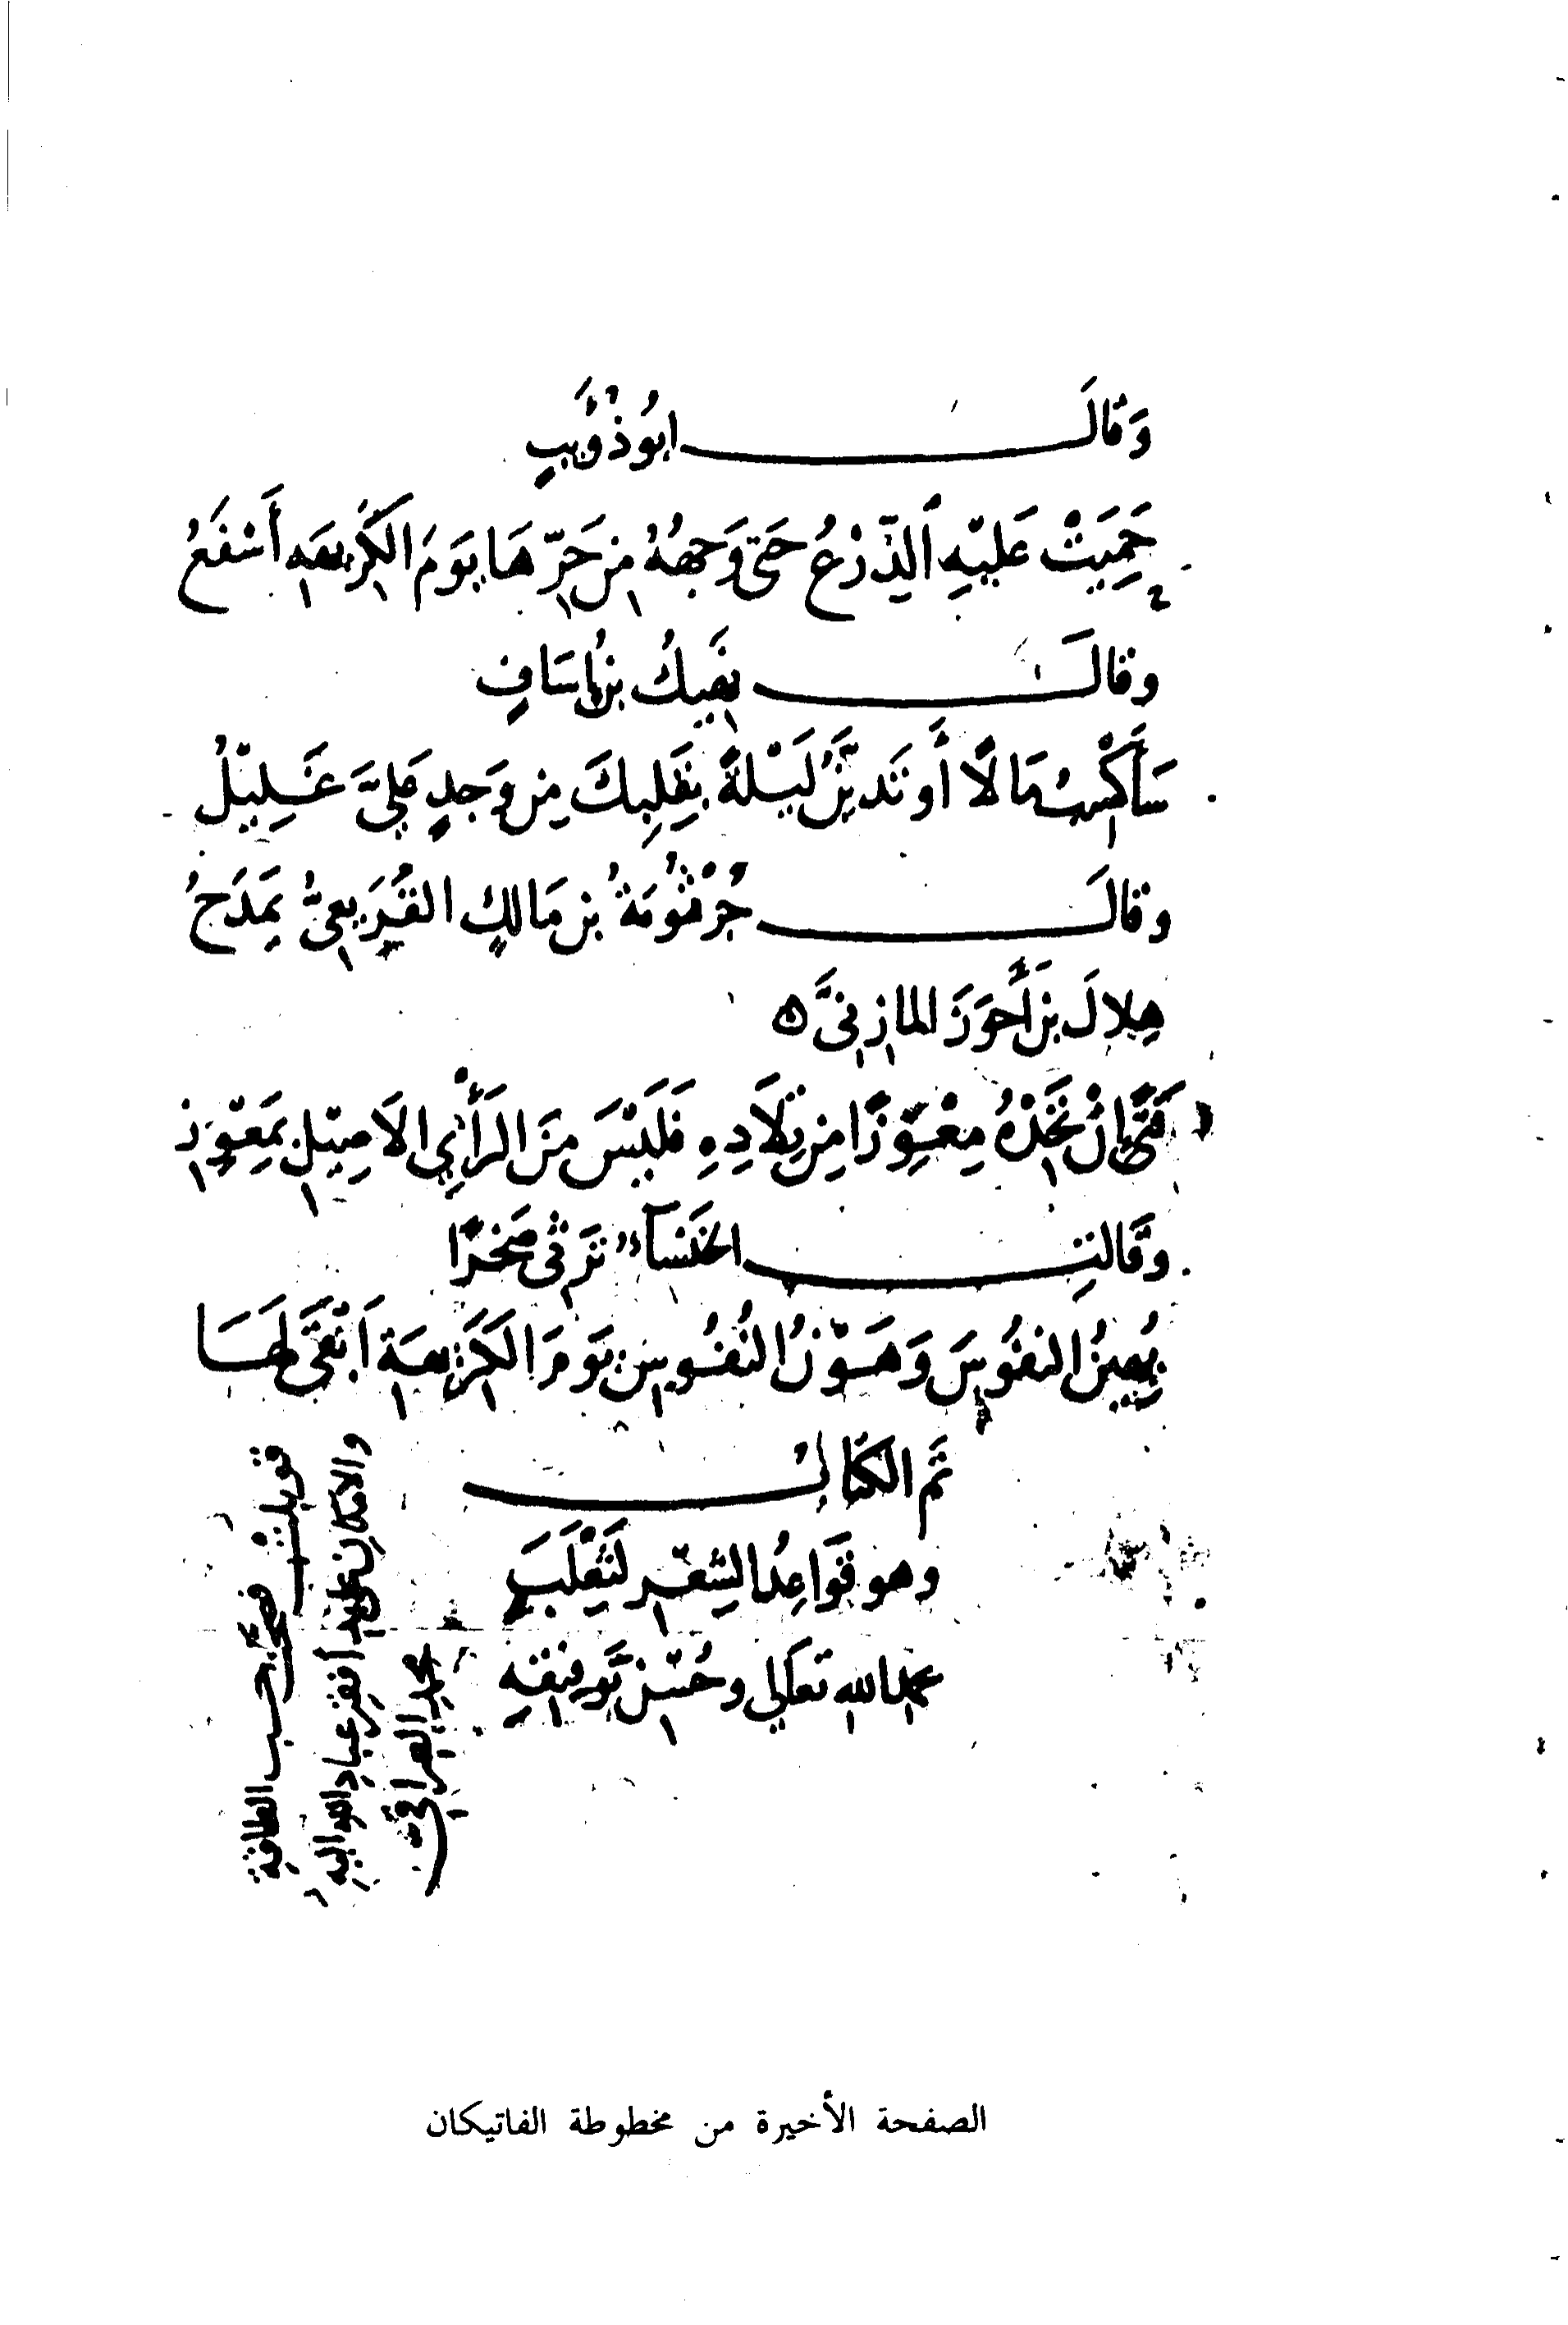 وَقَالَ ابُو ذُؤَيبٍ
حَمِيَتْ عَلَيْهِ الدِّرْعُ حَتَّى وَجهُهُ مِن حَرِّهَا يَومَ الكَرِيهَهِ أَسْفَعُ
وقالَ نَهِيكُ بنُ اِسَافٍ
سَأَكْسِبُ مَالاً أَو تَدِينَنَّ لَيْلَةً بِقَلبِكَ مِن وَجدٍ عَلَيَّ غَلِيْلُ
وقالَ جُرْثُومَةُ بن مَالكٍ القُرَيعِيُّ يَمدَحُ
هِلالَ بنَ أَحوَزَ المازِنيَّ ه
فَتًى إنْ تَجِدْهُ مِعْوِزًا مِن تِلَادِهِ فَلَيْسَ مِنَ الرَأْيِ الاَصِيْلِ بمُعْوِزِ
وقَالتِ الخَنسَآءُ تَرثى صَخرًا
يُهِينُ النفُوسَ وَهَوْنُ النُفُوسِ يَومَ الكَرِيهَةِ اَبْقَى لَهَا
تَم الكتَابُ
وهو قوَاعِدُ الشِعْرِ لثَعْلَبَ
بحمد الله تعَالى وحُسْنِ تَوفِيقهِ
قوبلت فصحت حسب الطاقة
والامكان على يد أفقر عباد الله واليه
العراقى
الصفحة الأخيرة من مخطوطة الفاتيكان